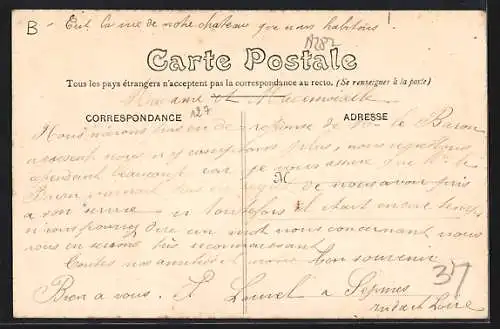 B - C'est la vue de notre chateau que nous habitons !
N282
Carte Postale
Tous les pays étrangers n'acceptent pas la correspondance au recto. (Se renseigner à la poste)
Madame et Mademoiselle
CORRESPONDANCE
127
ADRESSE
Nous n'avons pas eu de reponse de le Baron
nous n'y comptions plus, nous
cependant beaucoup car je vous assure que Mr le
Baron pas de nous avoir pris
M
a son service si toutefois il était encore temps
n'vous pourriez dire un mot nous concernant nous
vous en serions très reconnaissant
Toutes nos amitiés et notre bon souvenir
Bien a vous. P Louvel a Sepmes
Indre et Loire
37